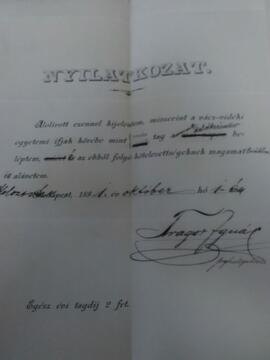 NYILATKOZAT.
Alolirott ezennel kijelentem, miszerint a vácz-vidéki
egyetemi ifjak körébe mint tag a be-
léptem, az ebből folyó kötelezettségeknek magamat
is alávetem.
Budapest, 1891. év október hó 1-én
Tragor Ignác
Egész évi tagdij 2 frt.